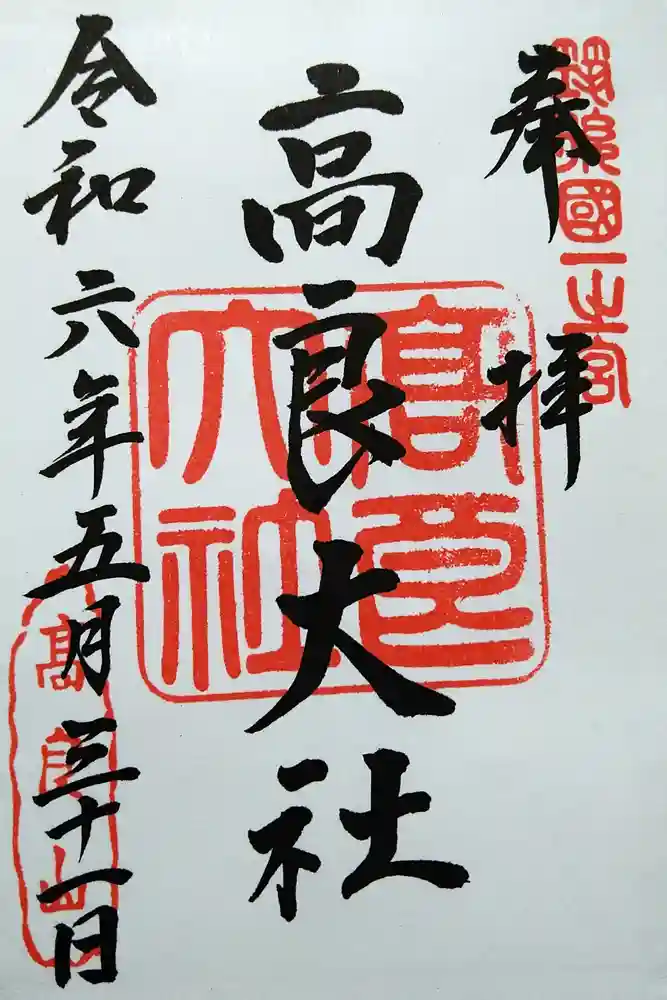 奉拝
筑後國一之宮
高良大社
高良大社
令和六年五月三十一日
高良山